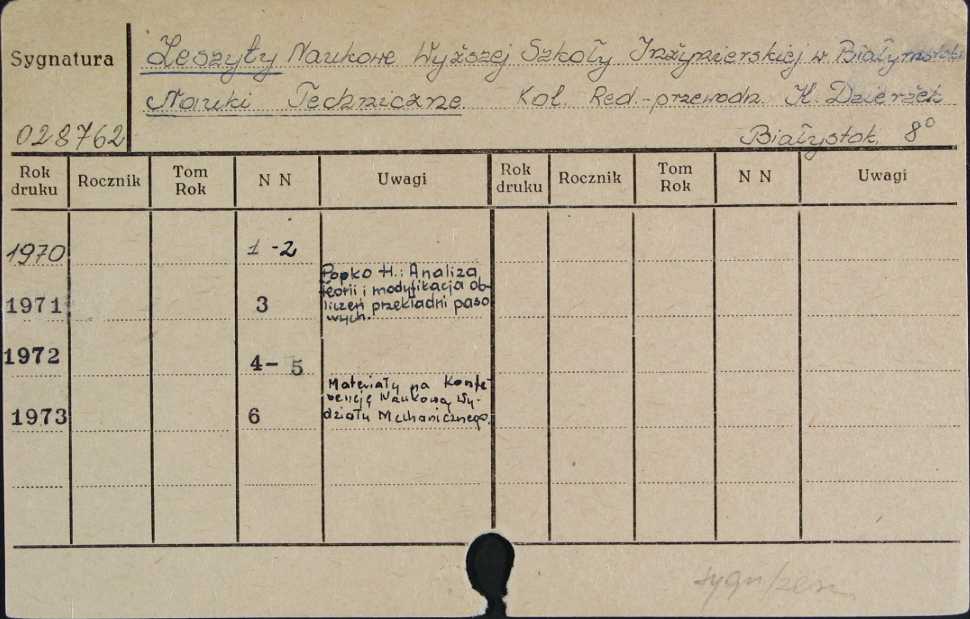 Sygnatura
Zeszyty Naukowe Wyższej Szkoły Inżynierskiej w Białymstoku
Nauki Techniczne. Kol. Red.-przewodn. K. Dzierżek
028762
Białystok, 8°
Rok druku Rocznik Tom Rok N N Uwagi Rok druku Rocznik Tom Rok N N Uwagi
1970 1-2
1971 3 Popko H.: Analiza
teorii i modyfikacja ob-
liczeń przekładni paso
wych.
1972 4-5
1973 6 Materiały na Konfe
rencję Naukową Wy-
działu Mechanicznego.